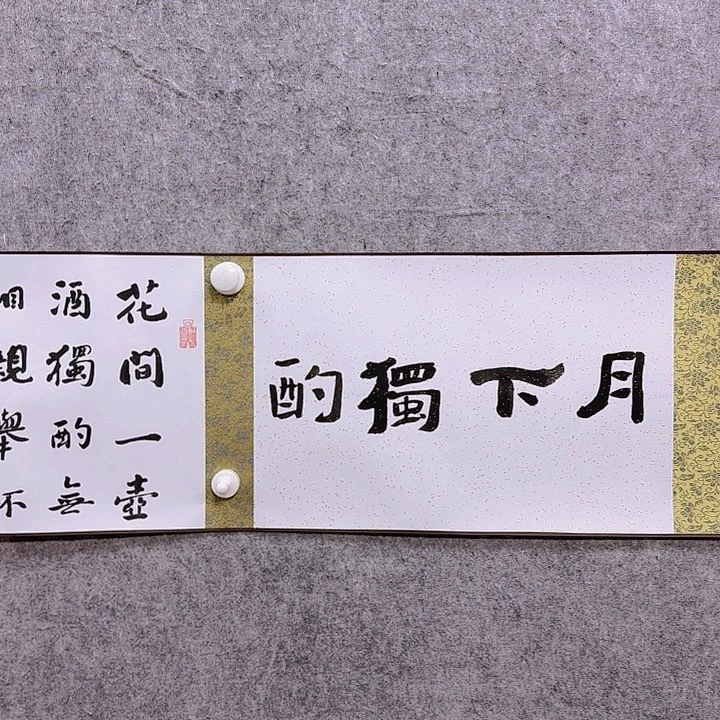 月下獨酌
花間一壺
酒獨酌無
相親舉杯